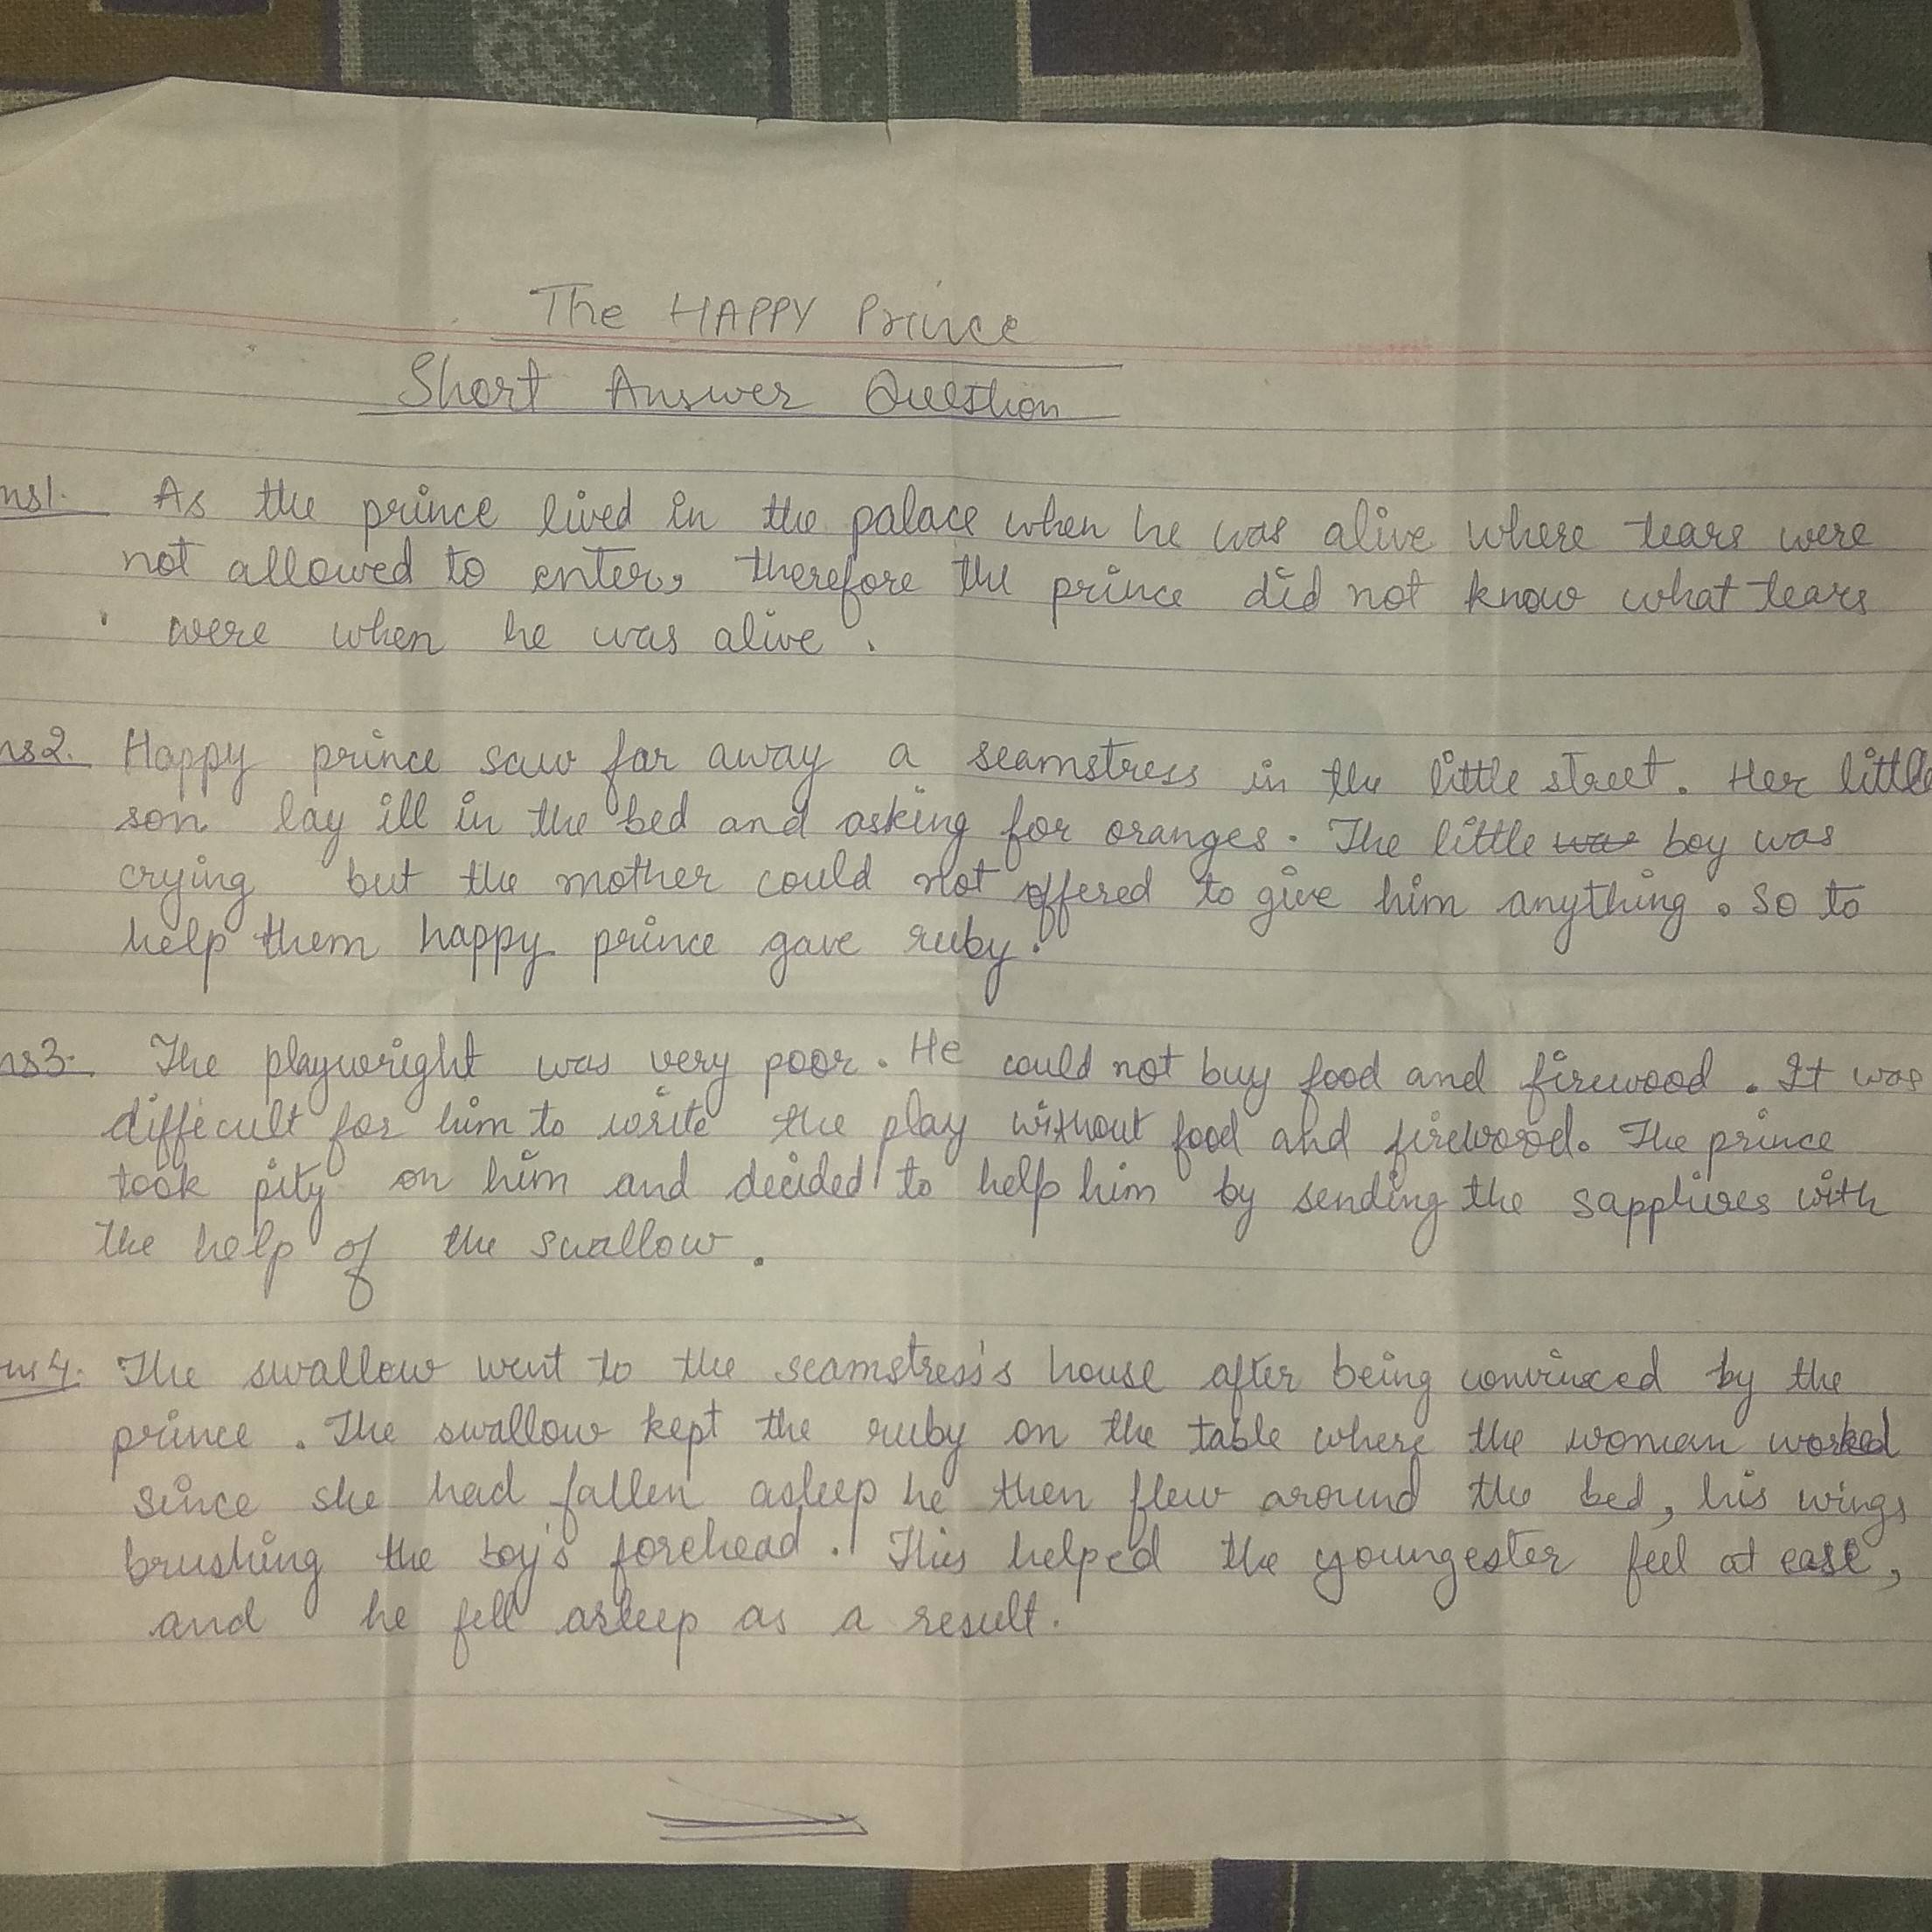 The HAPPY Prince
Short Answer Question
ns1. As the prince lived in the palace when he was alive where tears were
not allowed to enter, therefore the prince did not know what tears
were when he was alive.
ns2. Happy prince saw far away a seamstress in the little street. Her little
son lay ill in the bed and asking for oranges. The little was boy was
crying but the mother could not offered to give him anything. So to
help them happy prince gave ruby.
ns3. The playwright was very poor. He could not buy food and firewood. It was
difficult for him to write the play without food and firewood. The prince
took pity on him and decided to help him by sending the sapphires with
the help of the swallow.
ns4. The swallow went to the seamstress's house after being convinced by the
prince. The swallow kept the ruby on the table where the woman worked
since she had fallen asleep he then flew around the bed, his wings
brushing the boy's forehead. This helped the youngester feel at ease,
and he fell asleep as a result.